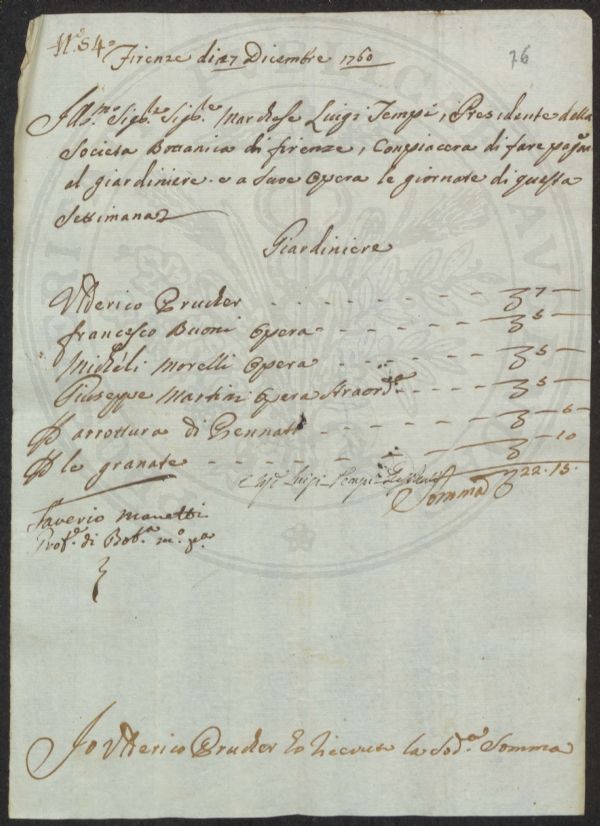 N.º 54º
76
Firenze di 27 Dicembre 1760
Ill.mo Sig.re Sig.re Marchese Luigi Tempi, Presidente della
Societa Bottanica di firenze, Conpiacera di fare pagare
al giardiniere e a Sue Opera le giornate di questa
Settimana
Giardiniere
Ulderico Prucher - - - - - - - - 7 -
francesco Buoni Opera - - - - - - 5 -
Micheli Morelli Opera - - - - - - 5 -
Giuseppe Martini Opera straord.ª - - 5 -
P arrottura di Pennati - - - - - - - 6 -
P le granate - - - - - - - - 10
Luigi Tempi Presidente
Somma 22.15.
Saverio Manetti
Prof.e di Bot.ª m.º pª
Io Ulderico Prucher ho ricevuto la Sod.ª Somma